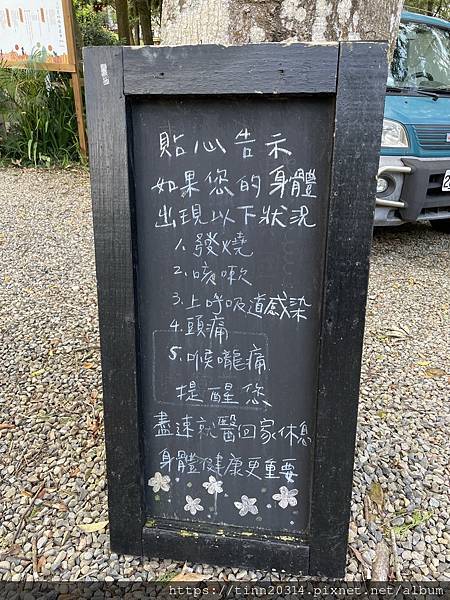 貼心告示
如果您的身體
出現以下狀況
1.發燒
2.咳嗽
3.上呼吸道感染
4.頭痛
5.喉嚨痛
提醒您
盡速就醫回家休息
身體健康更重要
https://tinn20314.pixnet.net/album